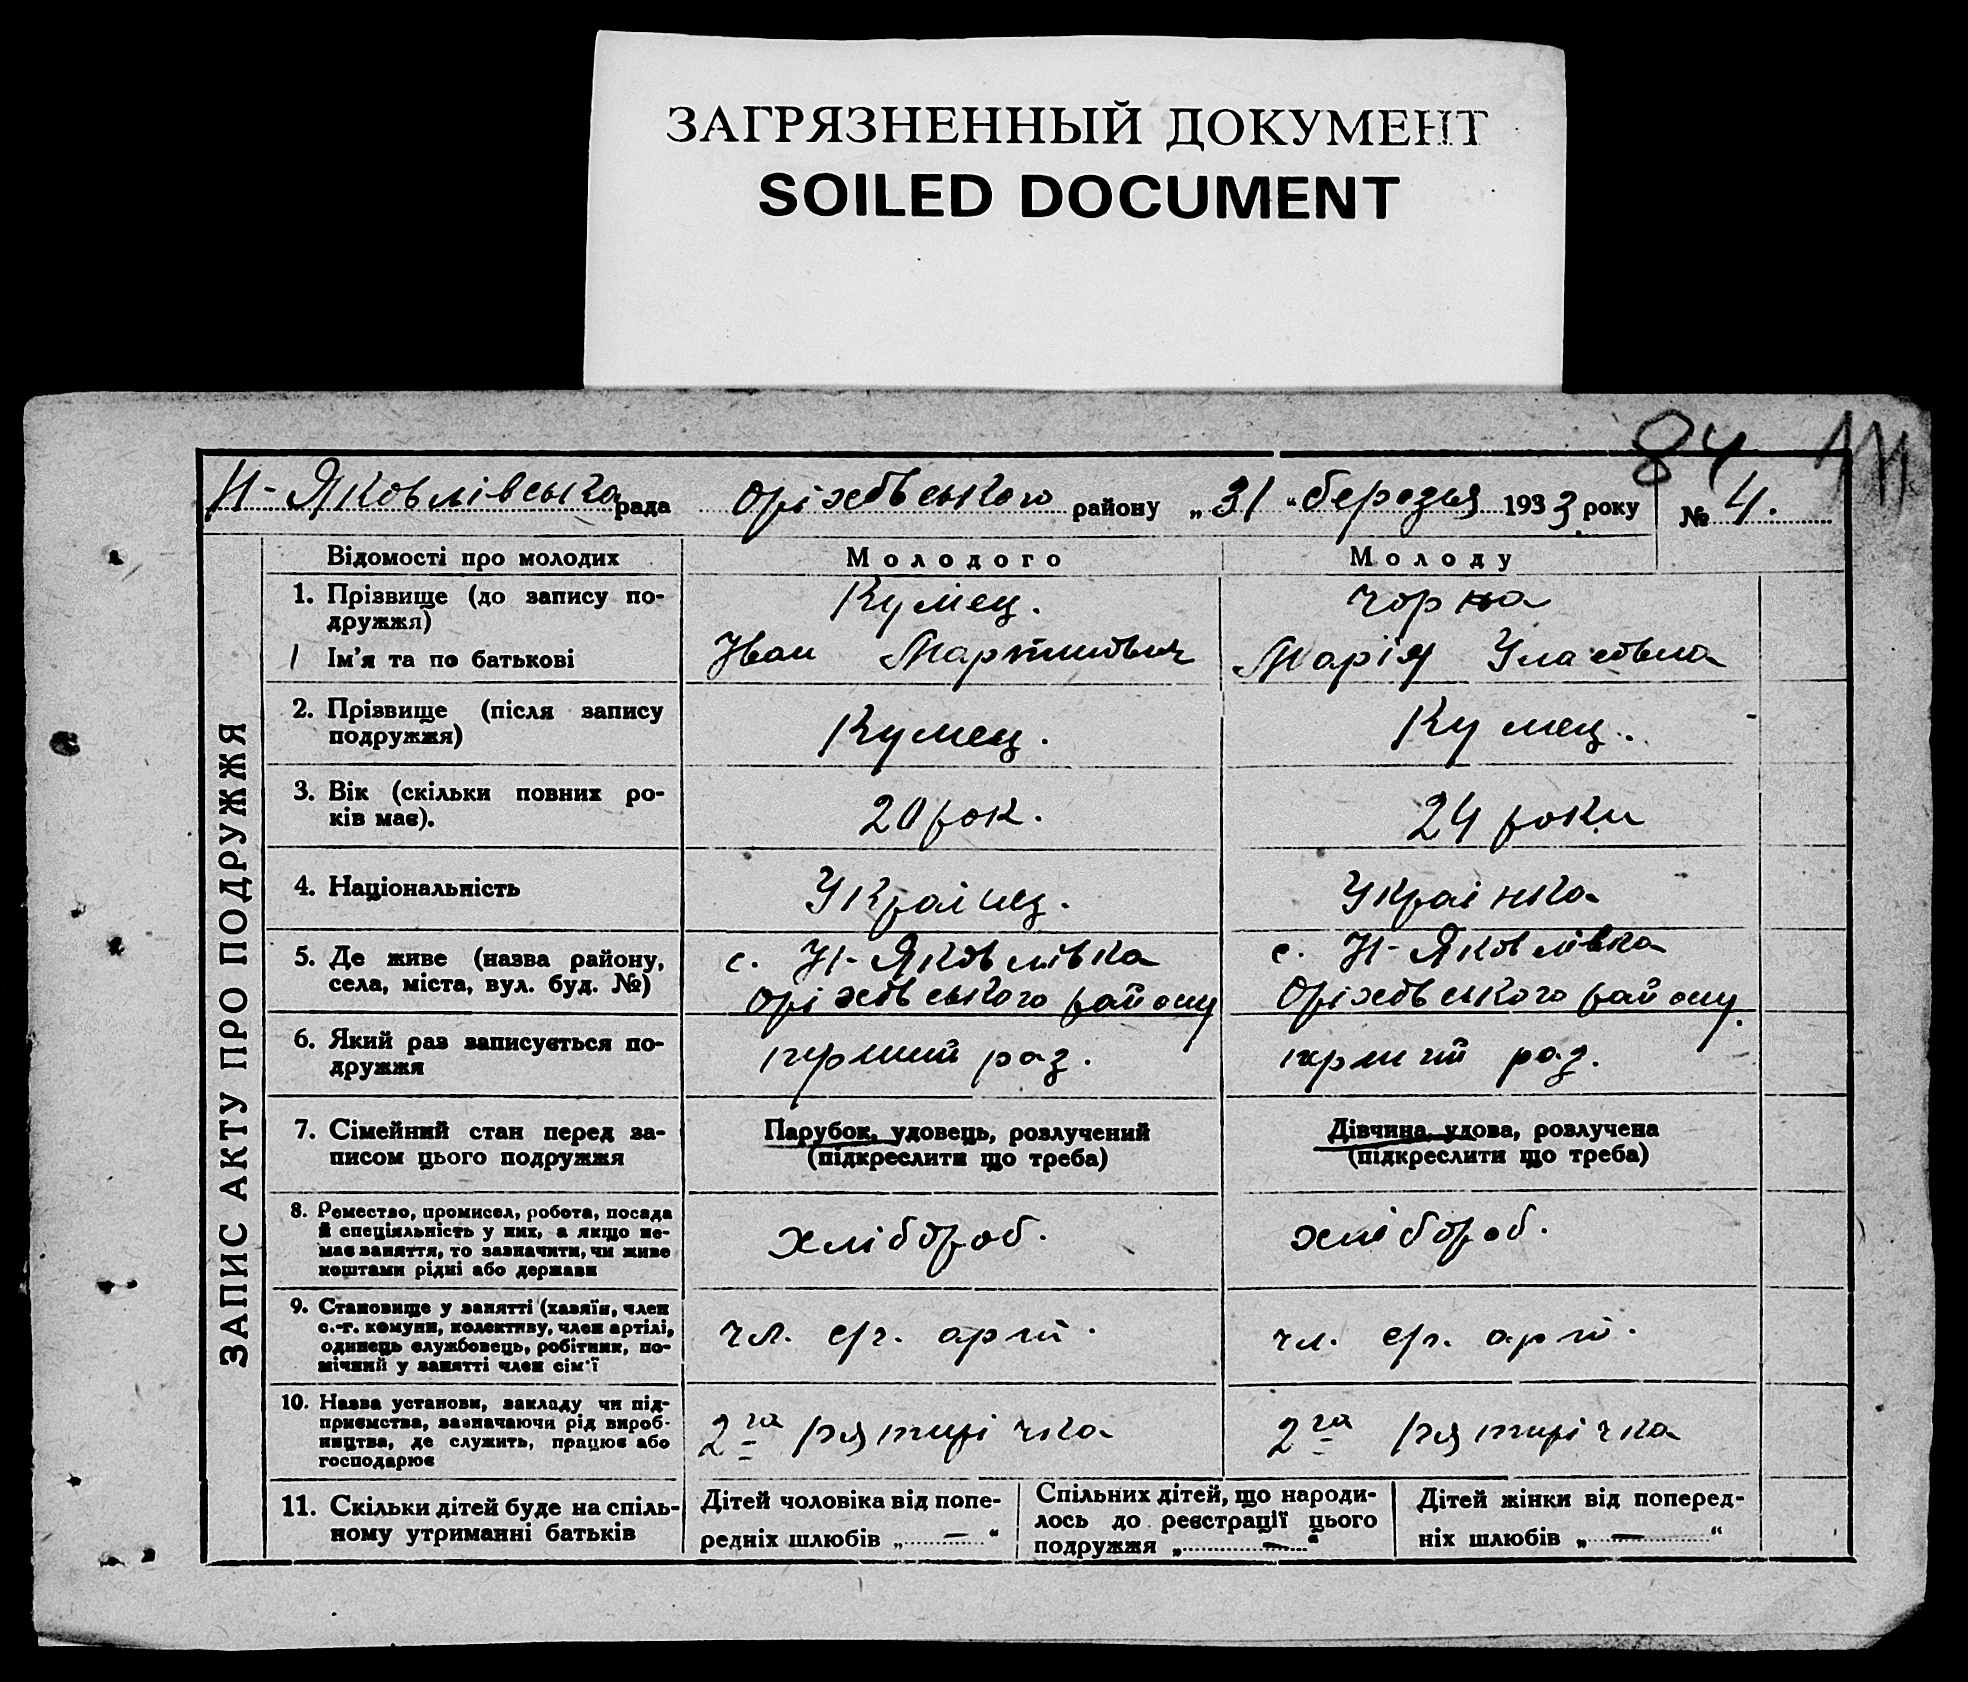 ЗАГРЯЗНЕННЫЙ ДОКУМЕНТ
SOILED DOCUMENT
84
Н-Яковлівська рада Оріхівського району „31“ березня 1933 року № 4.
ЗАПИС АКТУ ПРО ПОДРУЖЖЯ
Відомості про молодих Молодого Молоду
1. Прізвище (до запису по-
дружжя) Кумец. Чорна
Ім'я та по батькові Іван Мартинович Марія Уласовна
2. Прізвище (після запису
подружжя) Кумец. Кумец.
3. Вік (скільки повних ро-
ків має). 20 рок. 24 роки
4. Національність Украінец. Украінка
5. Де живе (назва району,
села, міста, вул. буд. №)
с. Н-Яковлівка с. Н-Яковлівка
Оріхівського району Оріхівського району.
6. Який раз записується по-
дружжя перший раз. перший раз.
7. Сімейний стан перед за-
писом цього подружжя
Парубок, удовець, розлучений Дівчина, удова, розлучена
(підкреслити що треба) (підкреслити що треба)
8. Ремество, промисел, робота, посада
й спеціяльність у них, а якщо не-
має заняття, то зазначити, чи живе
коштами рідні або держави
хлібороб. хлібороб.
9. Становище у занятті (хазяїн, член
с.-г. комуни, колективу, член артілі,
одинець службовець, робітник, по-
мічний у занятті член сім'ї
чл. с/г. арт. чл. с/г. арт.
10. Назва установи, закладу чи під-
приємства, зазначаючи рід вироб-
ництва, де служить, працює або
господарює
2га пятирічка 2га пятирічка
11. Скільки дітей буде на спіль-
ному утриманні батьків
Дітей чоловіка від попе-
редніх шлюбів „—“
Спільних дітей, що народи-
лось до реєстрації цього
подружжя „—“
Дітей жінки від поперед-
ніх шлюбів „—“